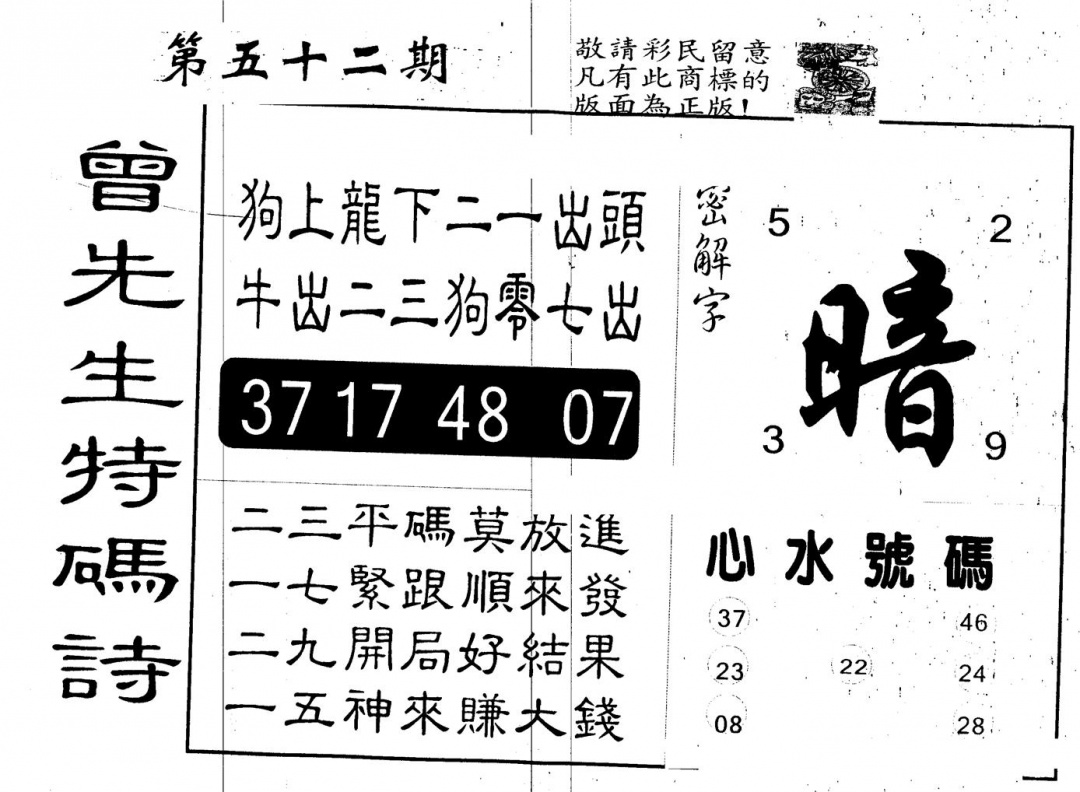 第五十二期
敬請彩民留意
凡有此商標的
版面為正版!
曾先生特碼詩
狗上龍下二一出頭
牛出二三狗零七出
37 17 48 07
密解字
5 2
暗
3 9
二三平碼莫放進
一七緊跟順來發
二九開局好結果
一五神來賺大錢
心水號碼
37 46
23 22 24
08 28